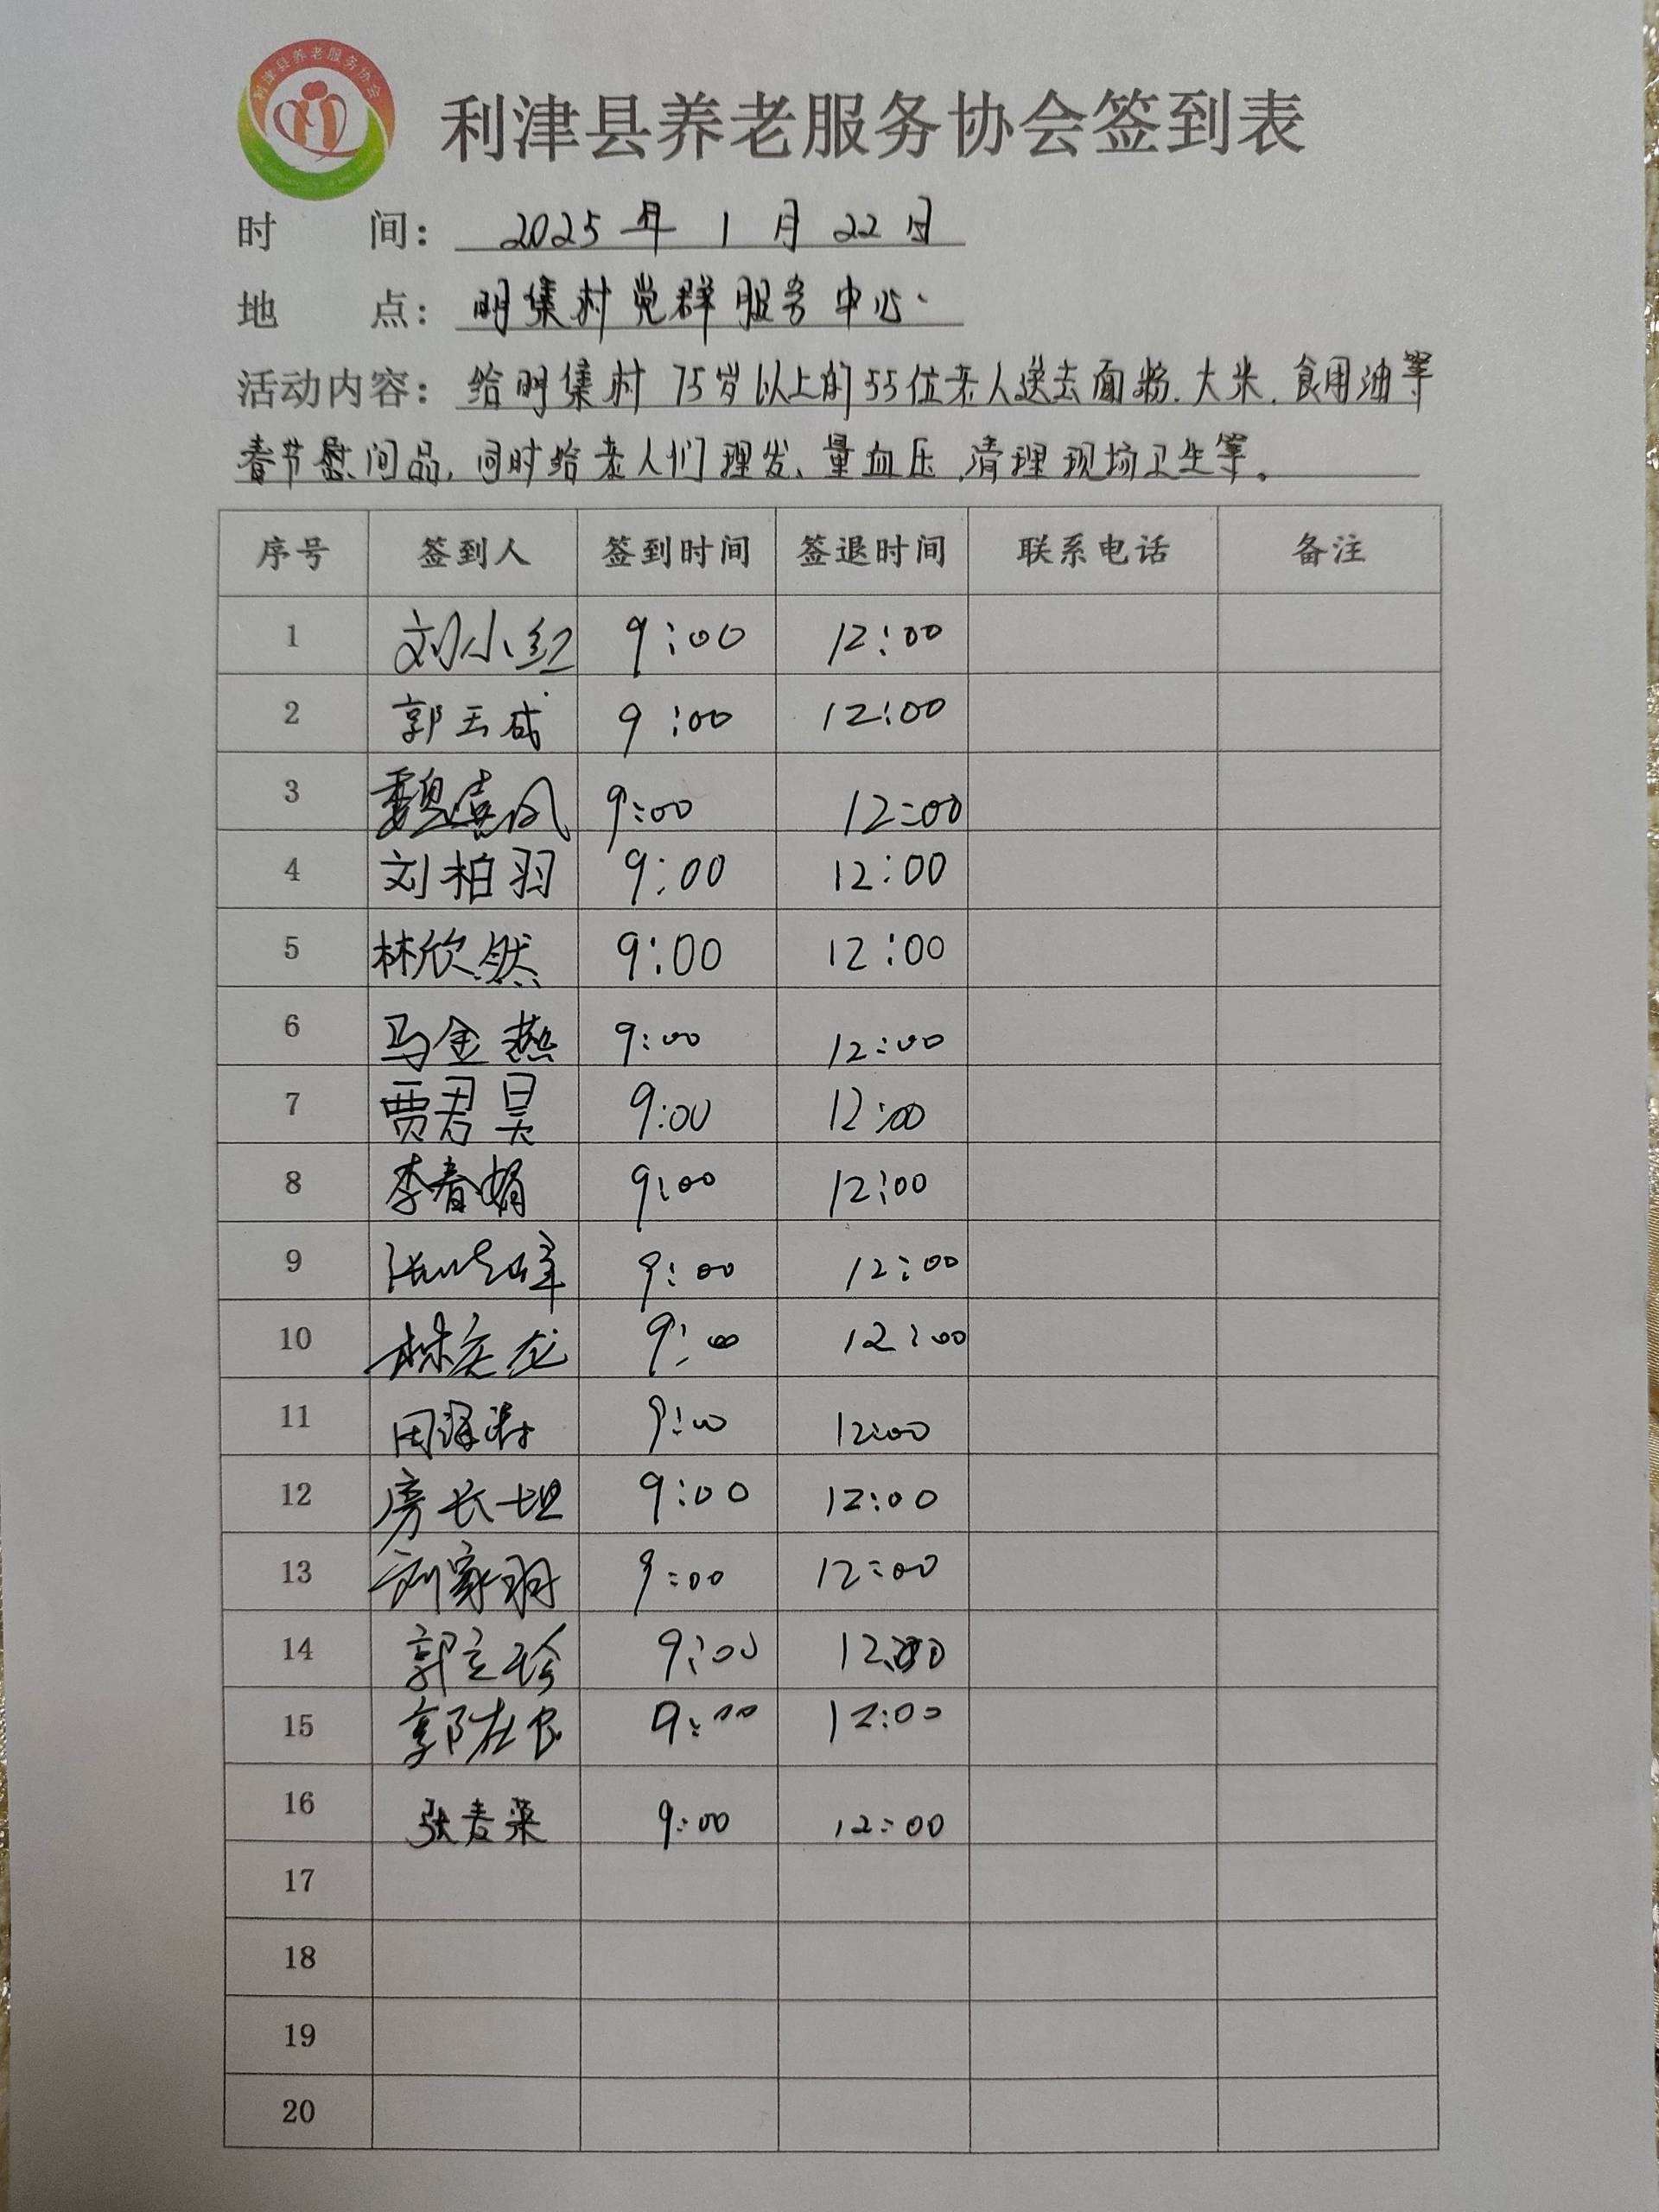 利津县养老服务协会
利津县养老服务协会签到表
时 间： 2025 年 1 月 22 日
地 点： 明集村党群服务中心.
活动内容： 给明集村 75岁以上的55位老人送去面粉.大米.食用油等
春节慰问品, 同时给老人们理发、量血压.清理现场卫生等。
序号 签到人 签到时间 签退时间 联系电话 备注
1 刘小红 9:00 12:00
2 郭玉成 9:00 12:00
3 魏喜风 9:00 12:00
4 刘柏羽 9:00 12:00
5 林欣然 9:00 12:00
6 马金燕 9:00 12:00
7 贾君昊 9:00 12:00
8 李春娟 9:00 12:00
9 9:00 12:00
10 9:00 12:00
11 9:00 12:00
12 房长坦 9:00 12:00
13 刘家羽 9:00 12:00
14 郭立珍 9:00 12:00
15 郭在良 9:00 12:00
16 张春菜 9:00 12:00
17
18
19
20